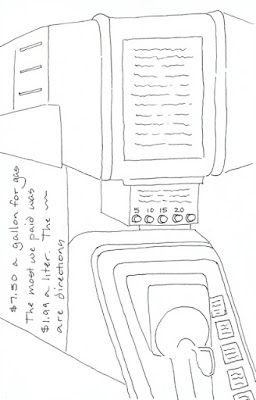 $7.50 a gallon for gas
The most we paid was
$1.99 a liter. The
are directions
5 10 15 20